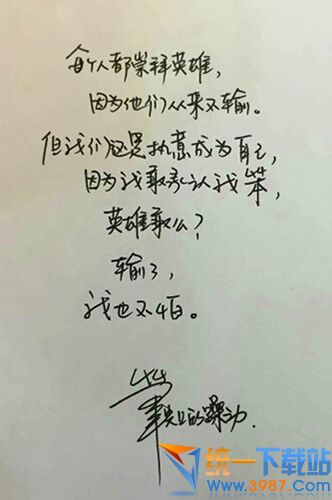 每个人都崇拜英雄,
因为他们从来不输。
但我们还是执意成为自己,
因为我敢承认我笨,
英雄敢么?
输了,
我也不怕。
笨
的躁动.
统一下载站
www.3987.com